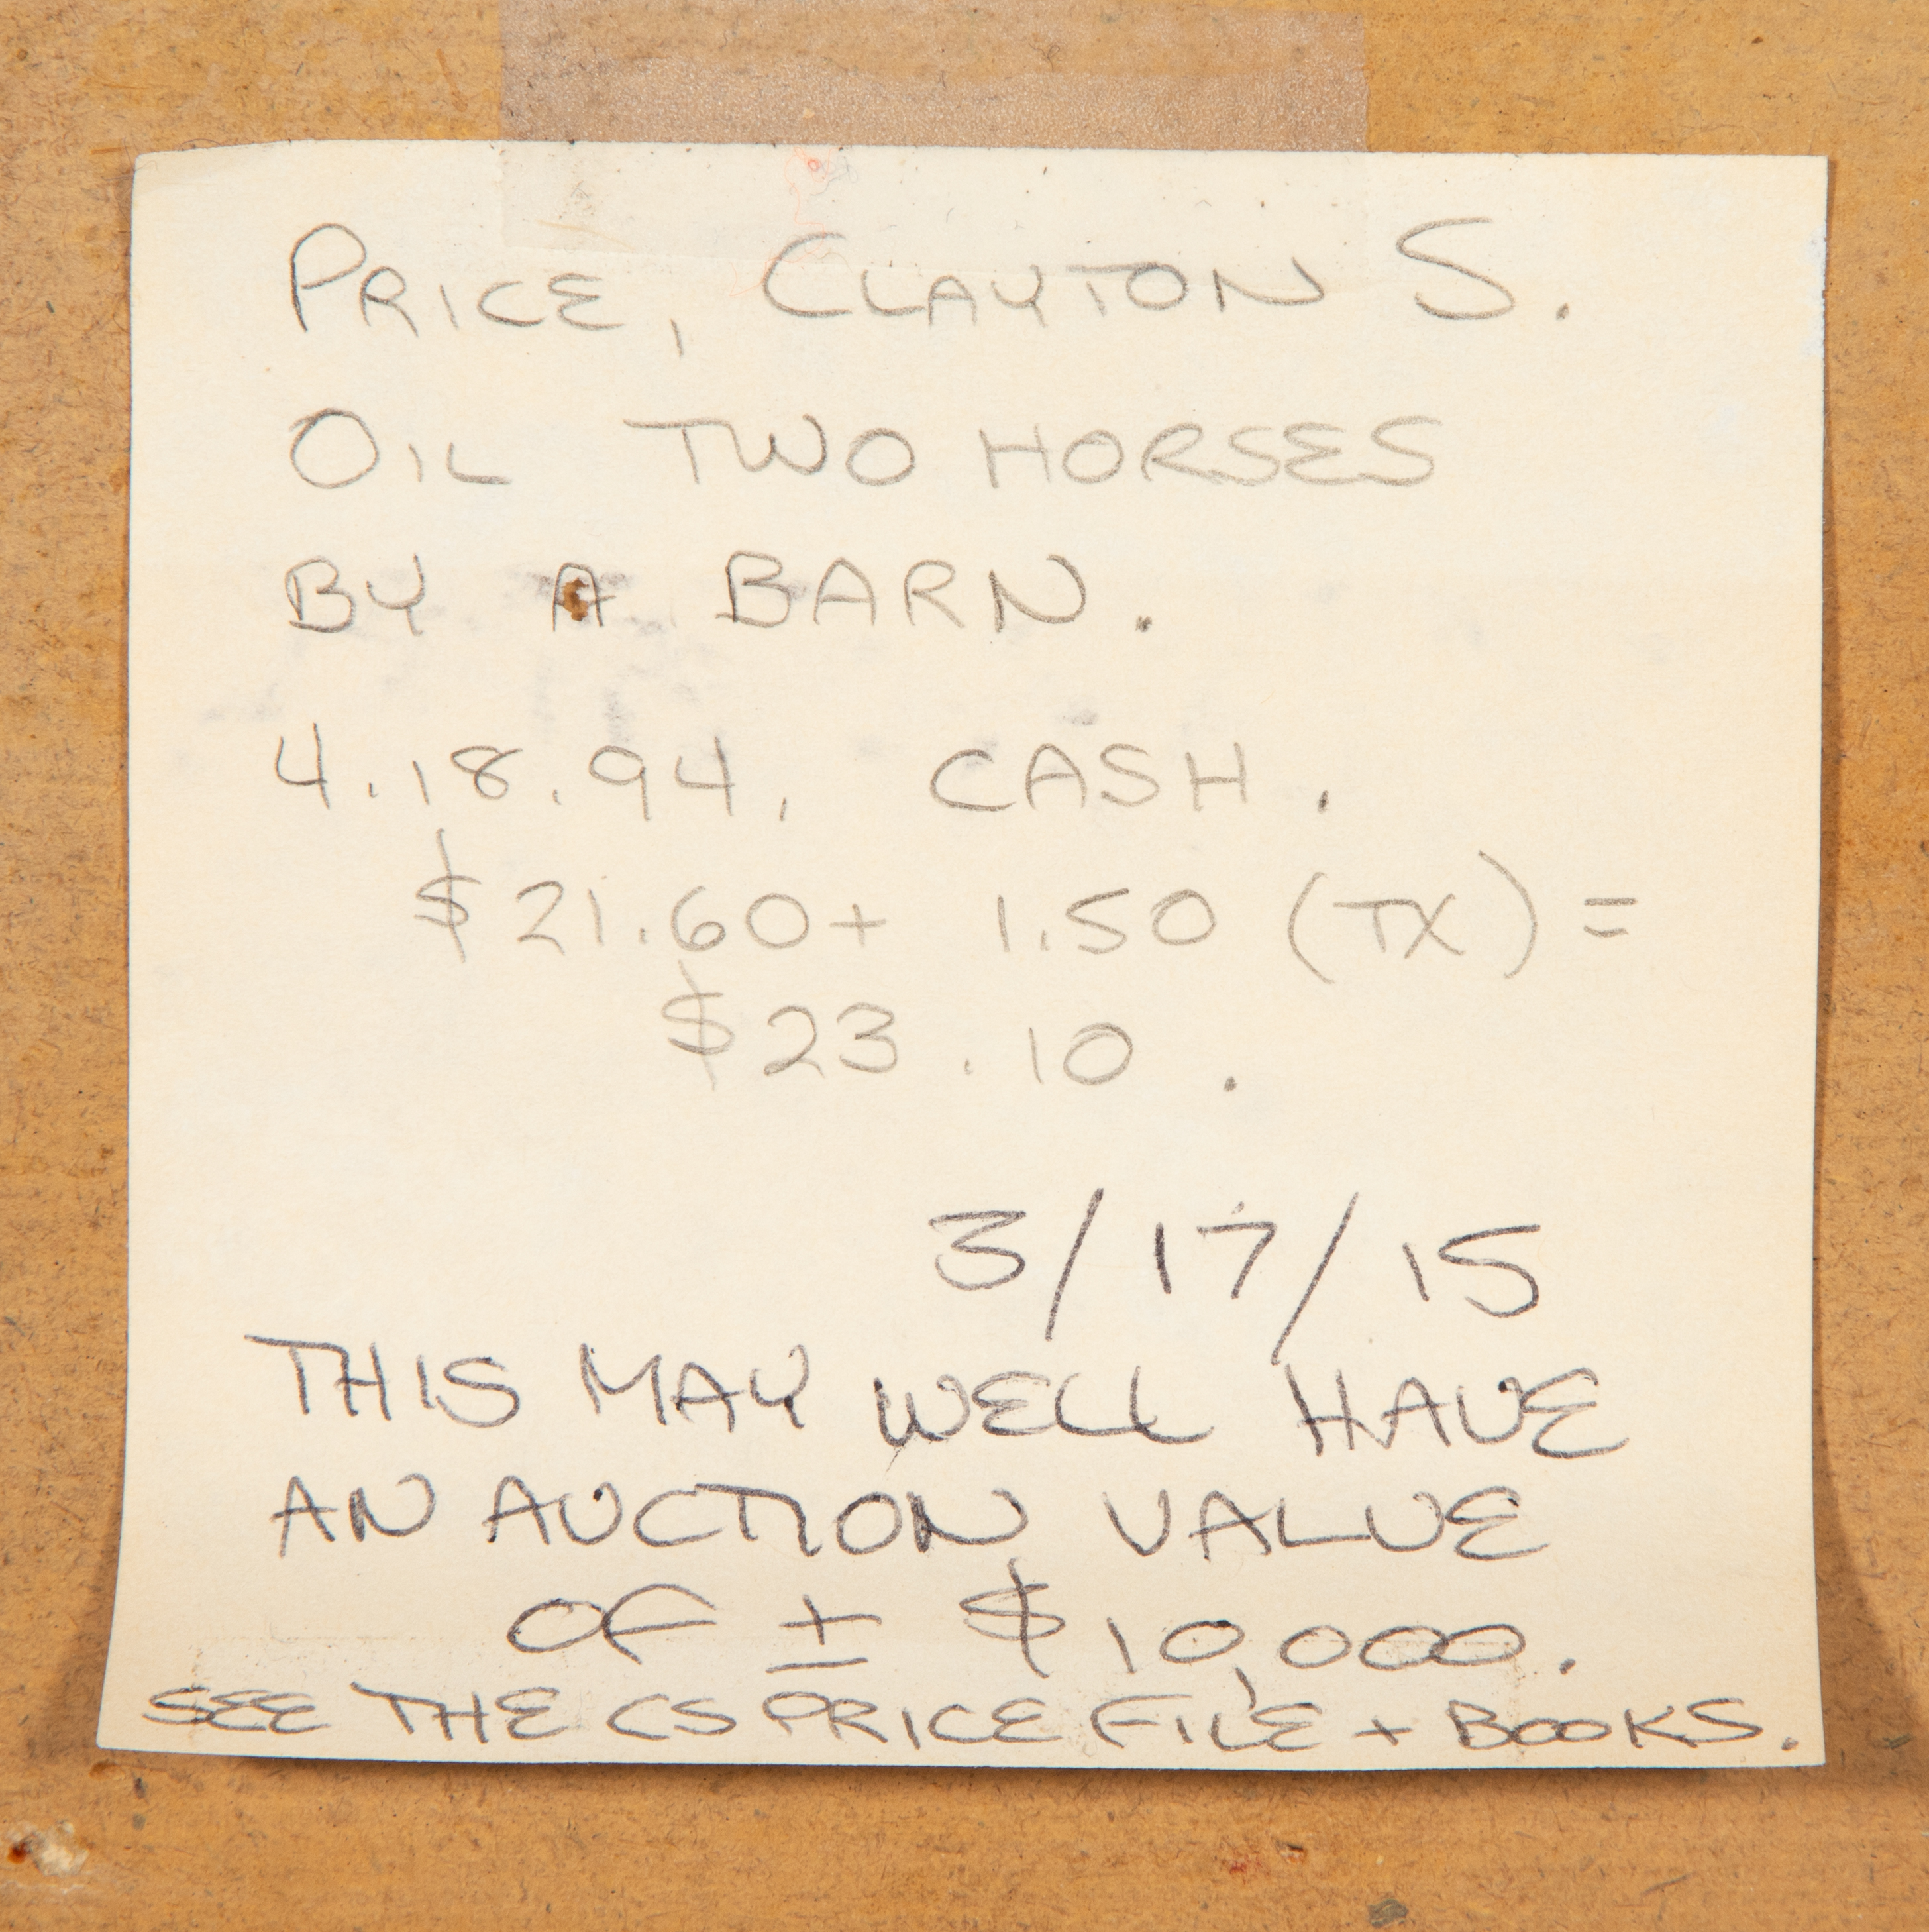 PRICE, CLAYTON S.
OIL TWO HORSES
BY A BARN.
4.18.94. CASH.
$21.60+ 1.50 (TX) =
$23.10.
3/17/15
THIS MAY WELL HAVE
AN AUCTION VALUE
OF ± $10,000.
SEE THE CS PRICE FILE + BOOKS.